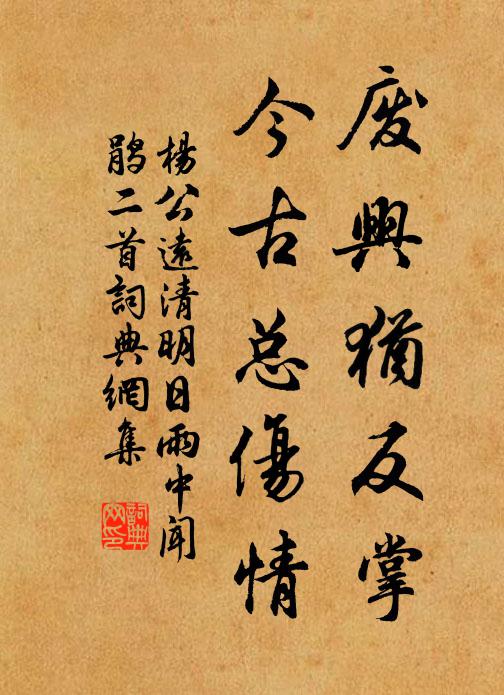 廢興猶反掌
今古总傷情
楊公遠清明日雨中闻
鹃二首詞典網集
詞典
网印